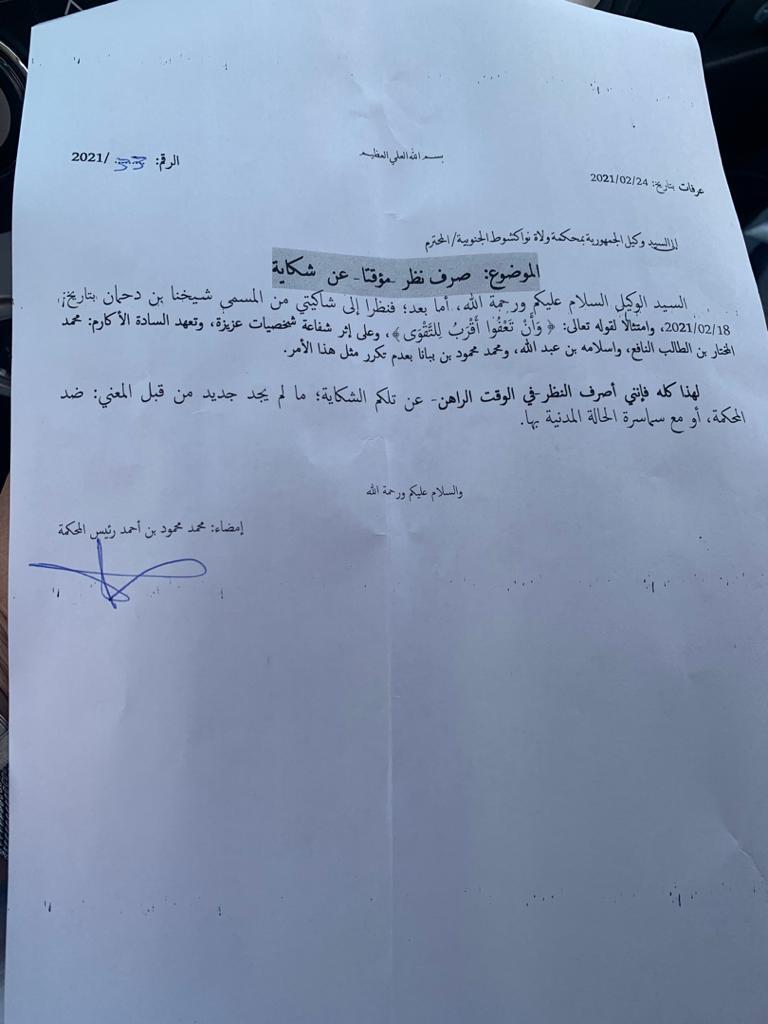 بسم الله العلي العظيم
الرقم: /2021
عرفات بتاريخ: 2021/02/24
إلى السيد وكيل الجمهورية بمحكمة ولاة نواكشوط الجنوبية/المحترم
الموضوع: صرف نظر -مؤقتا- عن شكاية
السيد الوكيل السلام عليكم ورحمة الله، أما بعد؛ فنظرا إلى شاكيتي من المسمى شيخنا بن دحمان بتاريخ:
2021/02/18، وامتثالا لقوله تعالى: ﴿ وَأَنْ تَعْفُوا أَقْرَبُ لِلتَّقْوَى ﴾، وعلى إثر شفاعة شخصيات عزيزة، وتعهد السادة الأكارم: محمد
المختار بن الطالب النافع، واسلامه بن عبد الله، ومحمد محمود بن ببانا بعدم تكرر مثل هذا الأمر.
لهذا كله فإنني أصرف النظر -في الوقت الراهن- عن تلكم الشكاية؛ ما لم يجد جديد من قبل المعني: ضد
المحكمة، أو مع سماسرة الحالة المدنية بها.
والسلام عليكم ورحمة الله
إمضاء: محمد محمود بن أحمد رئيس المحكمة